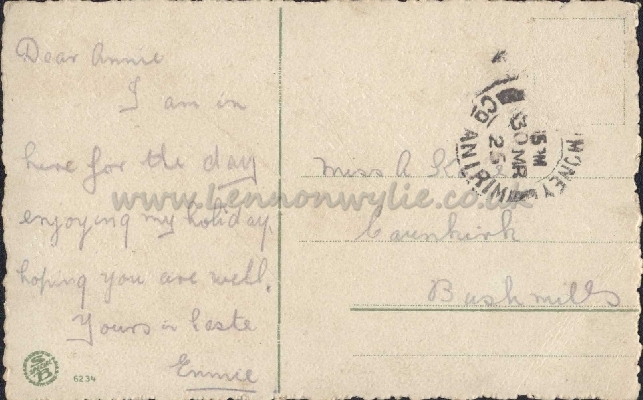 Dear Annie
I am in
here for the day
enjoying my holiday,
hoping you are well.
Yours in haste
Ennie
6234
Miss A
Carnkirk
Bushmills
MONEY
5
30 MR
25
CO ANTRIM
www.lennonwylie.co.uk